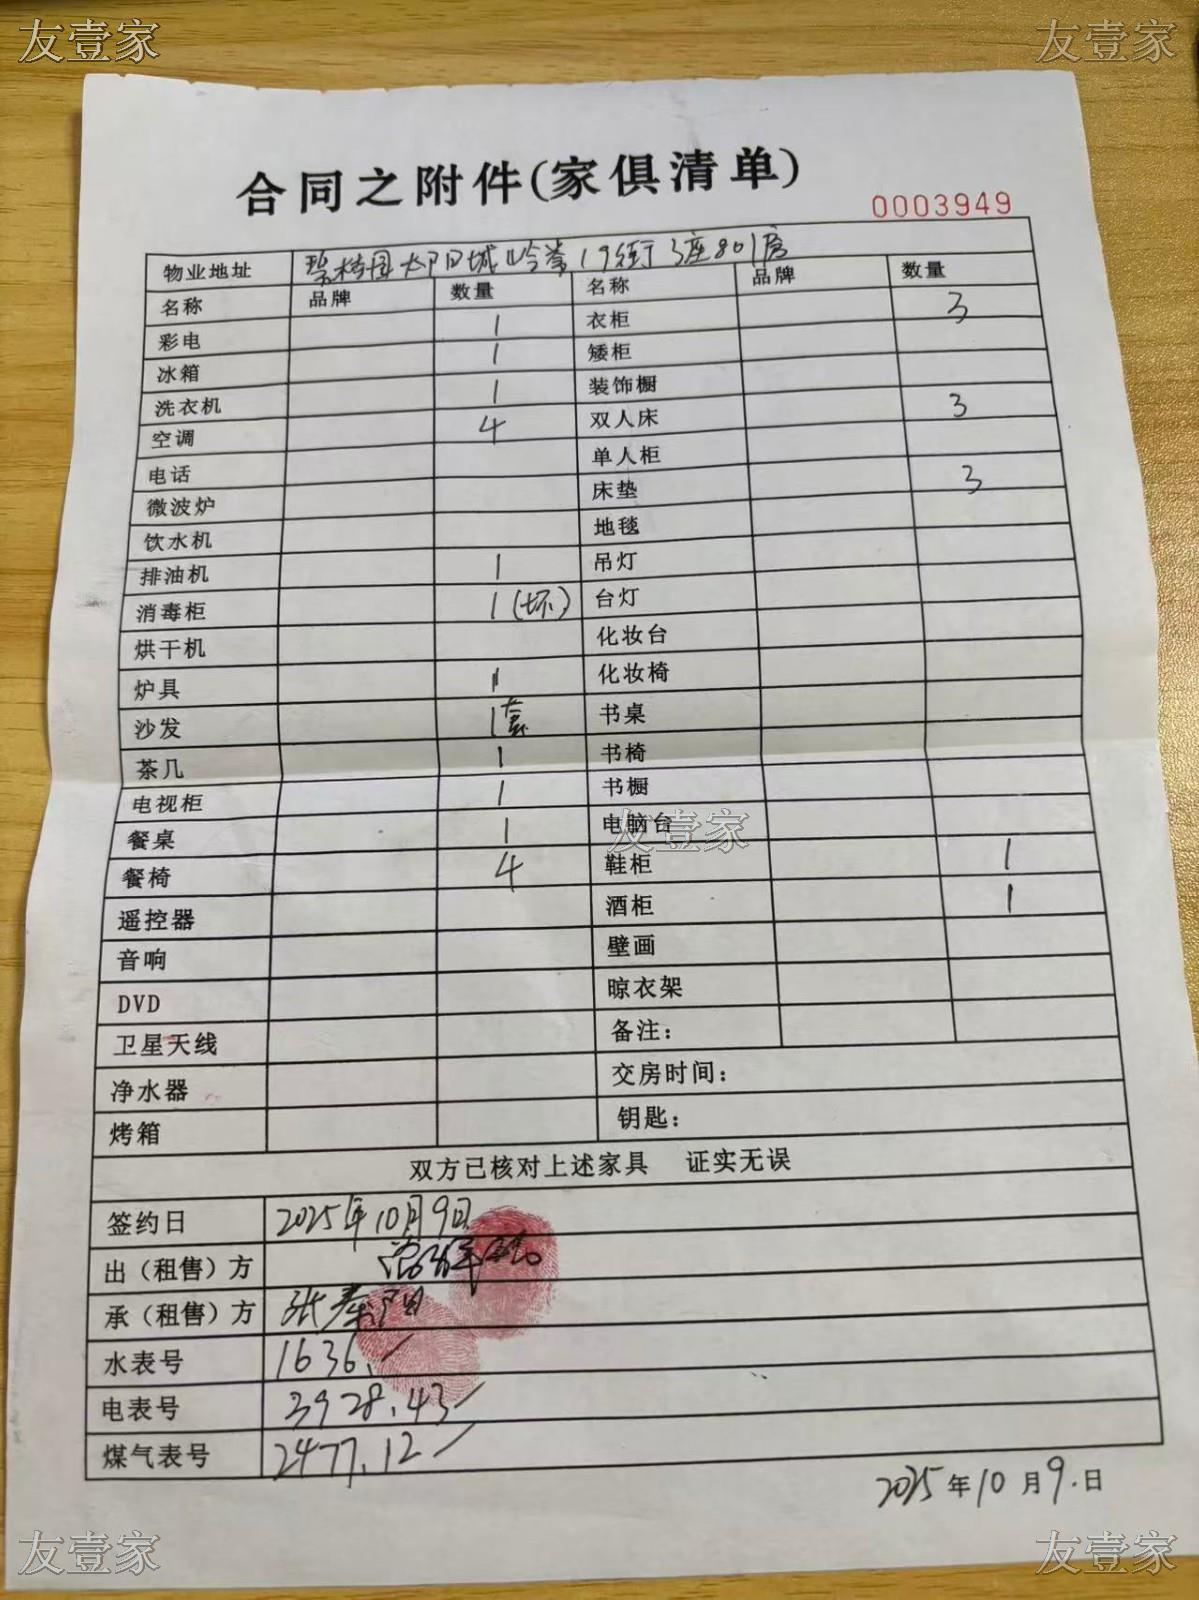 友壹家 友壹家
合同之附件(家俱清单)
0003949
物业地址 碧桂园太阳城 19街3座801房
名称 品牌 数量 名称 品牌 数量
彩电 1 衣柜 3
冰箱 1 矮柜
洗衣机 1 装饰橱
空调 4 双人床 3
电话 单人柜
微波炉 床垫 3
饮水机 地毯
排油机 1 吊灯
消毒柜 1(坏) 台灯
烘干机 化妆台
炉具 1 化妆椅
沙发 1套 书桌
茶几 1 书椅
电视柜 1 书橱
餐桌 1 电脑台
友壹家
餐椅 4 鞋柜 1
遥控器 酒柜 1
音响 壁画
DVD 晾衣架
卫星天线 备注：
净水器 交房时间：
烤箱 钥匙：
双方已核对上述家具 证实无误
签约日 2025年10月9日
出（租售）方
承（租售）方 张
水表号 1636.
电表号 3928.43
煤气表号 2477.12
2025年10月9.日
友壹家 友壹家